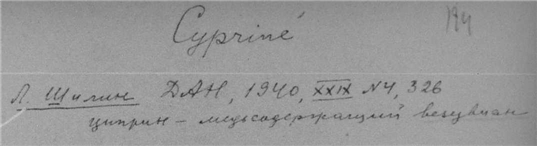 194
Cypriné
Л. Шилин ДАН, 1940, XXIX N4, 326
циприн – медьсодержащий везувиан